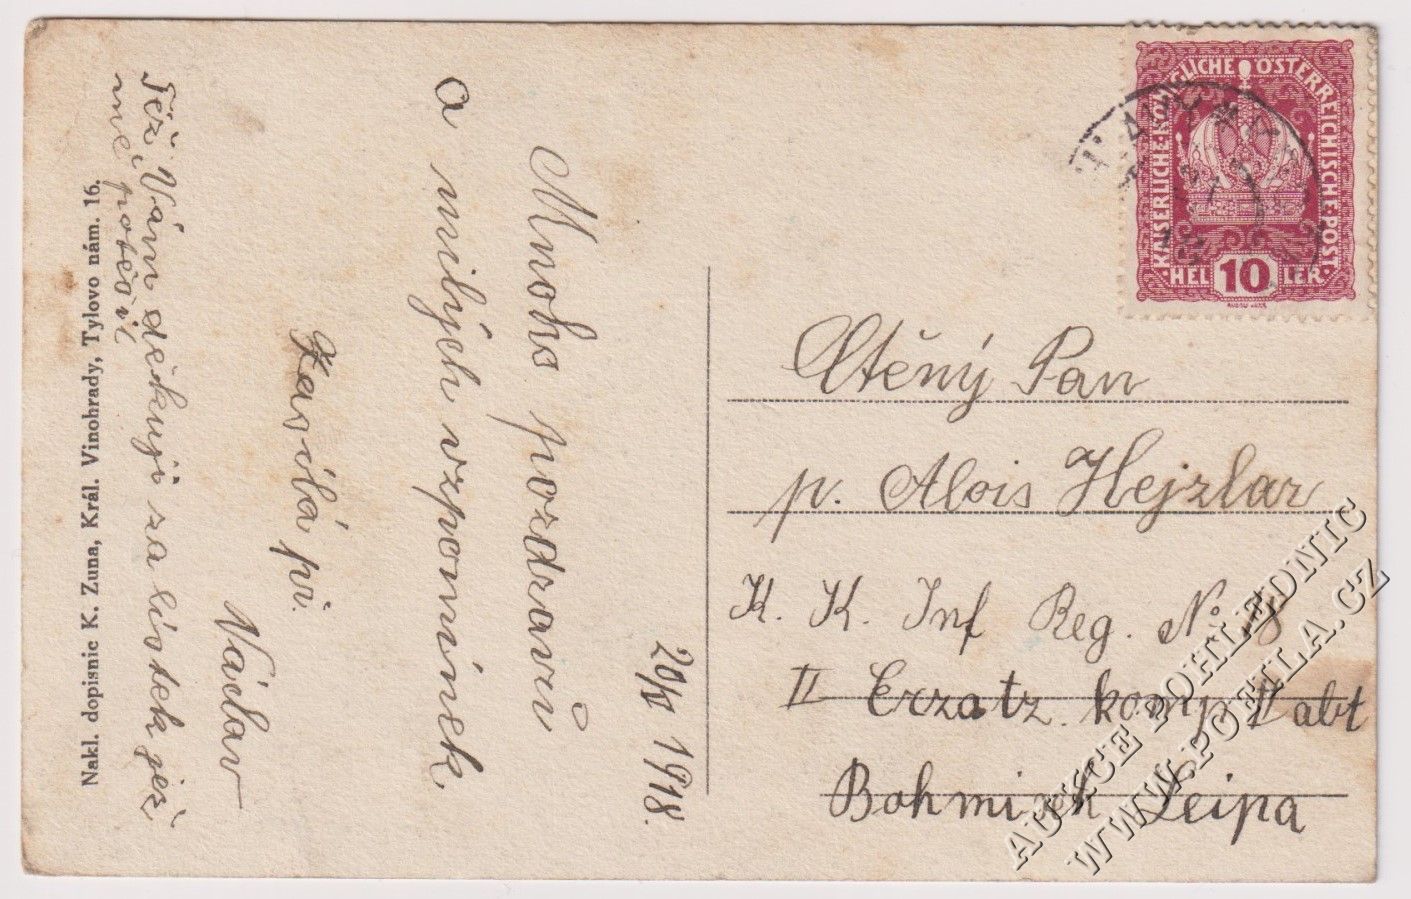 Mnoho pozdravů
a milých vzpomínek
pi.
Václav
Též Vám děkuji za lístek jež
mě potěšil
1918.
Nakl. dopisnic K. Zuna, Král. Vinohrady, Tylovo nám. 16.
KAISERLICHE·KÖNIGLICHE ÖSTERREICHISCHE·POST
HELLER
10
Ctěný Pan
p. Alois Hejzlar
K. K. Inf Reg. No 18
II Erzatz. komp. abt
Bohmisch Leipa
AUKCE POHLEDNIC
WWW.POFILA.CZ